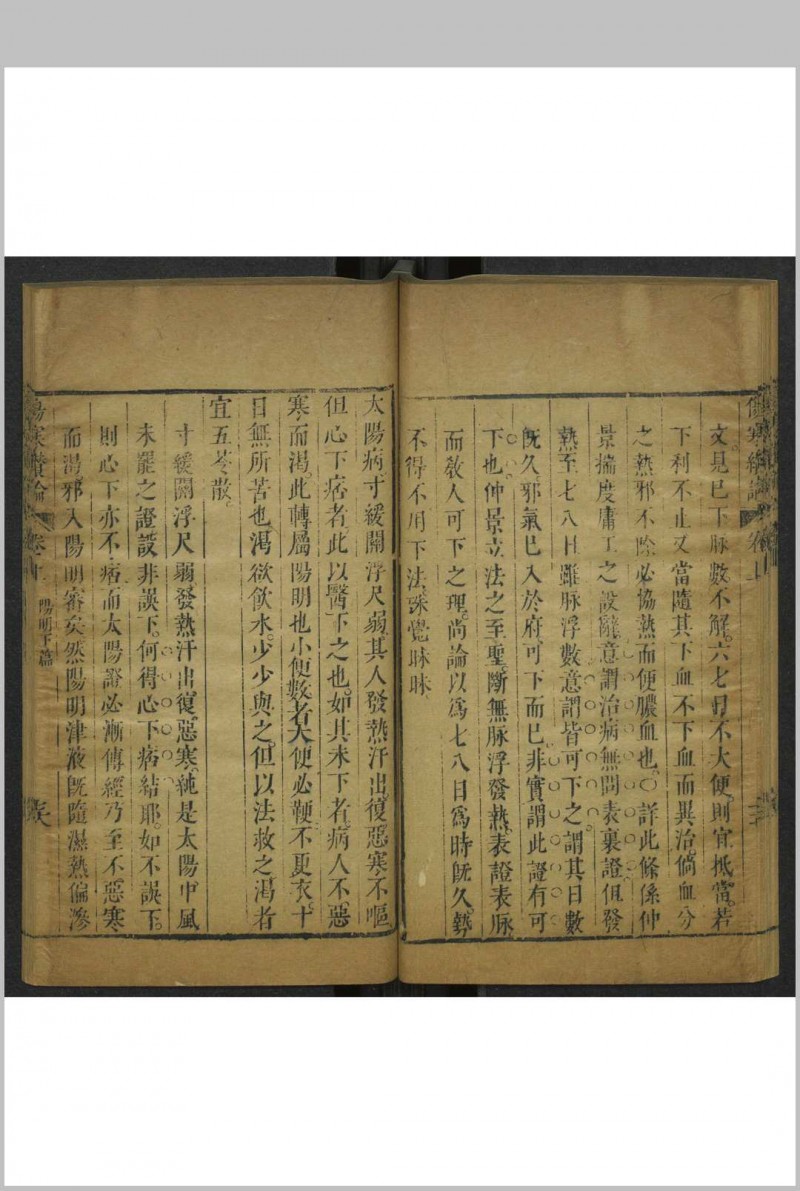 傷寒纘論 卷上
文是已下脉數不解六七日不大便則宜抵當若
下利不止又當隨其下血不下血而異治倘血分
之熱邪不除必協熱而便膿血也○詳此條係仲
景揣度庸工之設辭意謂治病無問表裏證但發
熱至七八日雖脉浮數意謂皆可下之謂其日數
旣久邪氣已入於府可下而已非實謂此證有可
下也仲景立法之至聖斷無脉浮發熱表證表脉
而敎人可下之理尚論以爲七八日爲時旣久勢
不得不用下法殊覺昧昧
太陽病寸緩關浮尺弱其人發熱汗出復惡寒不嘔
但心下痞者此以醫下之也如其未下者病人不惡
寒而渴此轉屬陽明也小便數者大便必鞕不更衣十
日無所苦也渴欲飮水少少與之但以法救之渴者
宜五苓散
寸緩關浮尺弱發熱汗出復惡寒純是太陽中風
未罷之證設非誤下何得心下痞結耶如不誤下
則心下亦不痞而太陽證必漸傳經乃至不惡寒
而渴邪入陽明審矣然陽明津液旣隨濕熱偏滲
傷寒纘論 卷上 陽明下篇